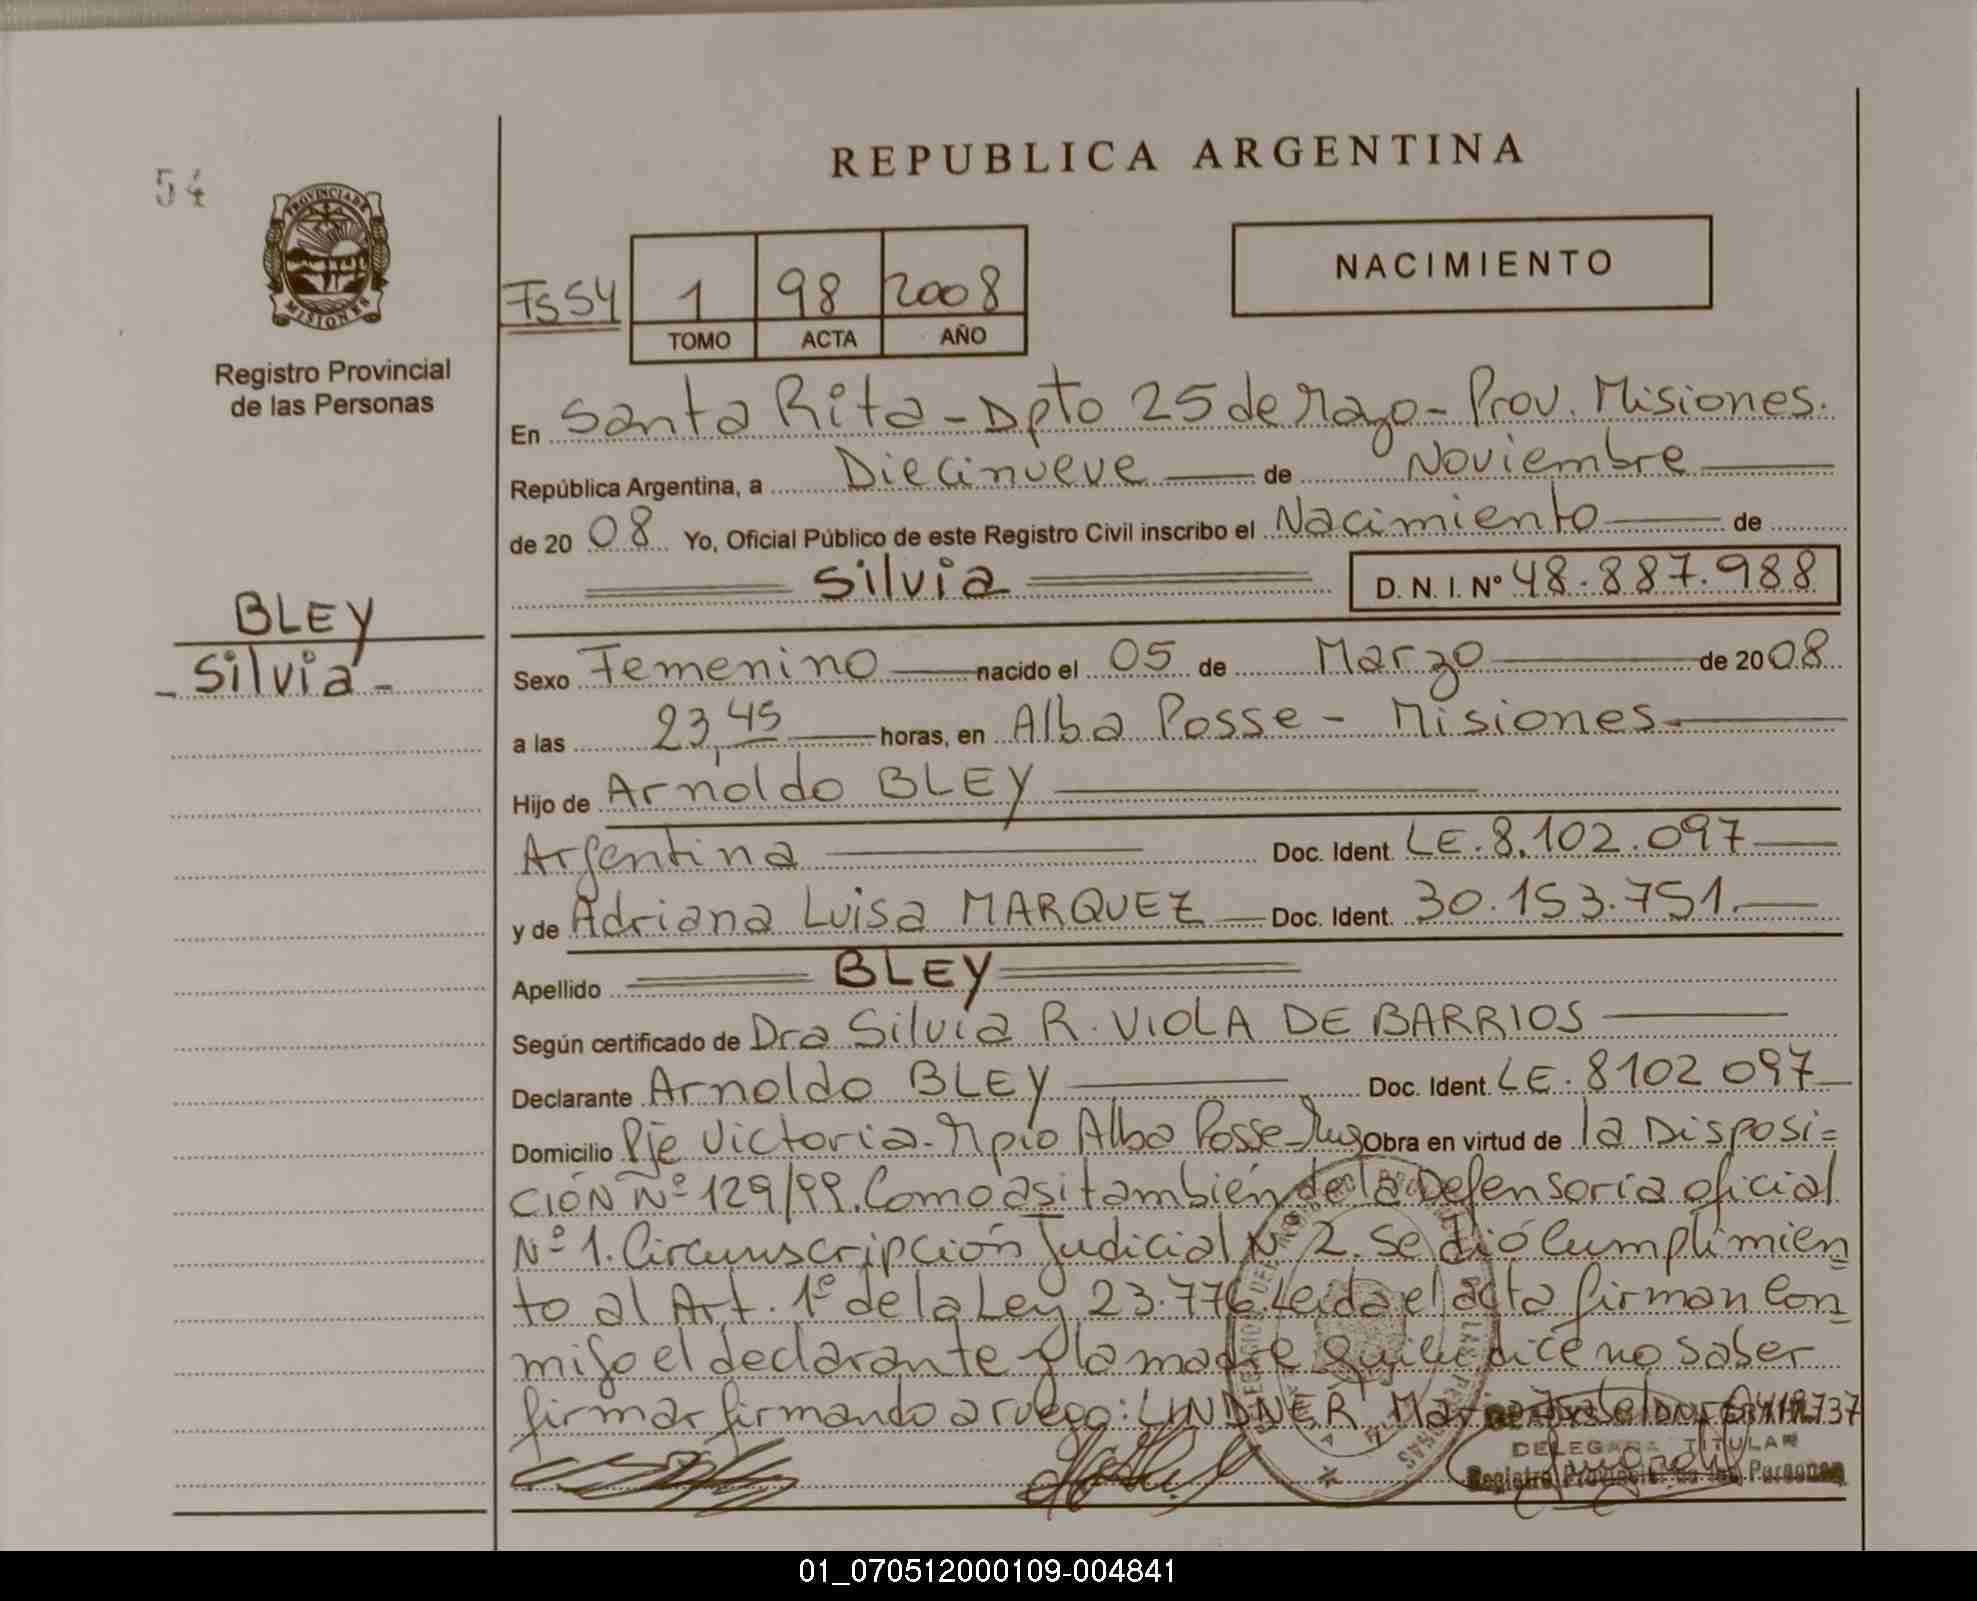 REPUBLICA ARGENTINA
54
PROVINCIA DE
MISIONES
Registro Provincial
de las Personas
NACIMIENTO
Fs 54 1 98 2008
TOMO ACTA AÑO
En Santa Rita - Dpto 25 de Mayo - Prov. Misiones.
República Argentina, a Diecinueve de Noviembre
de 20 08 Yo, Oficial Público de este Registro Civil inscribo el Nacimiento de
Silvia D. N. I. Nº 48.887.988
BLEY
- Silvia -
Sexo Femenino nacido el 05 de Marzo de 20 08
a las 23,45 horas, en Alba Posse - Misiones
Hijo de Arnoldo BLEY
Argentina Doc. Ident. LE. 8.102.097
y de Adriana Luisa MARQUEZ Doc. Ident. 30.153.751.
Apellido BLEY
Según certificado de Dra Silvia R. VIOLA DE BARRIOS
Declarante Arnoldo BLEY Doc. Ident. LE. 8102 097
Domicilio Pje Victoria - Mpio Alba Posse - Obra en virtud de la Disposi=
CIÓN Nº 129/99. Como así también de la Defensoría oficial
Nº 1. Circunscripción Judicial Nº 2. Se dió Cumplimien
to al Art. 1º de la Ley 23.776. Leida el acta firman Con
migo el declarante y la madre quien dice no saber
firmar firmando a ruego: LINDNER
DELEGADA TITULAR
Registro Provincial de las Personas
01_070512000109-004841